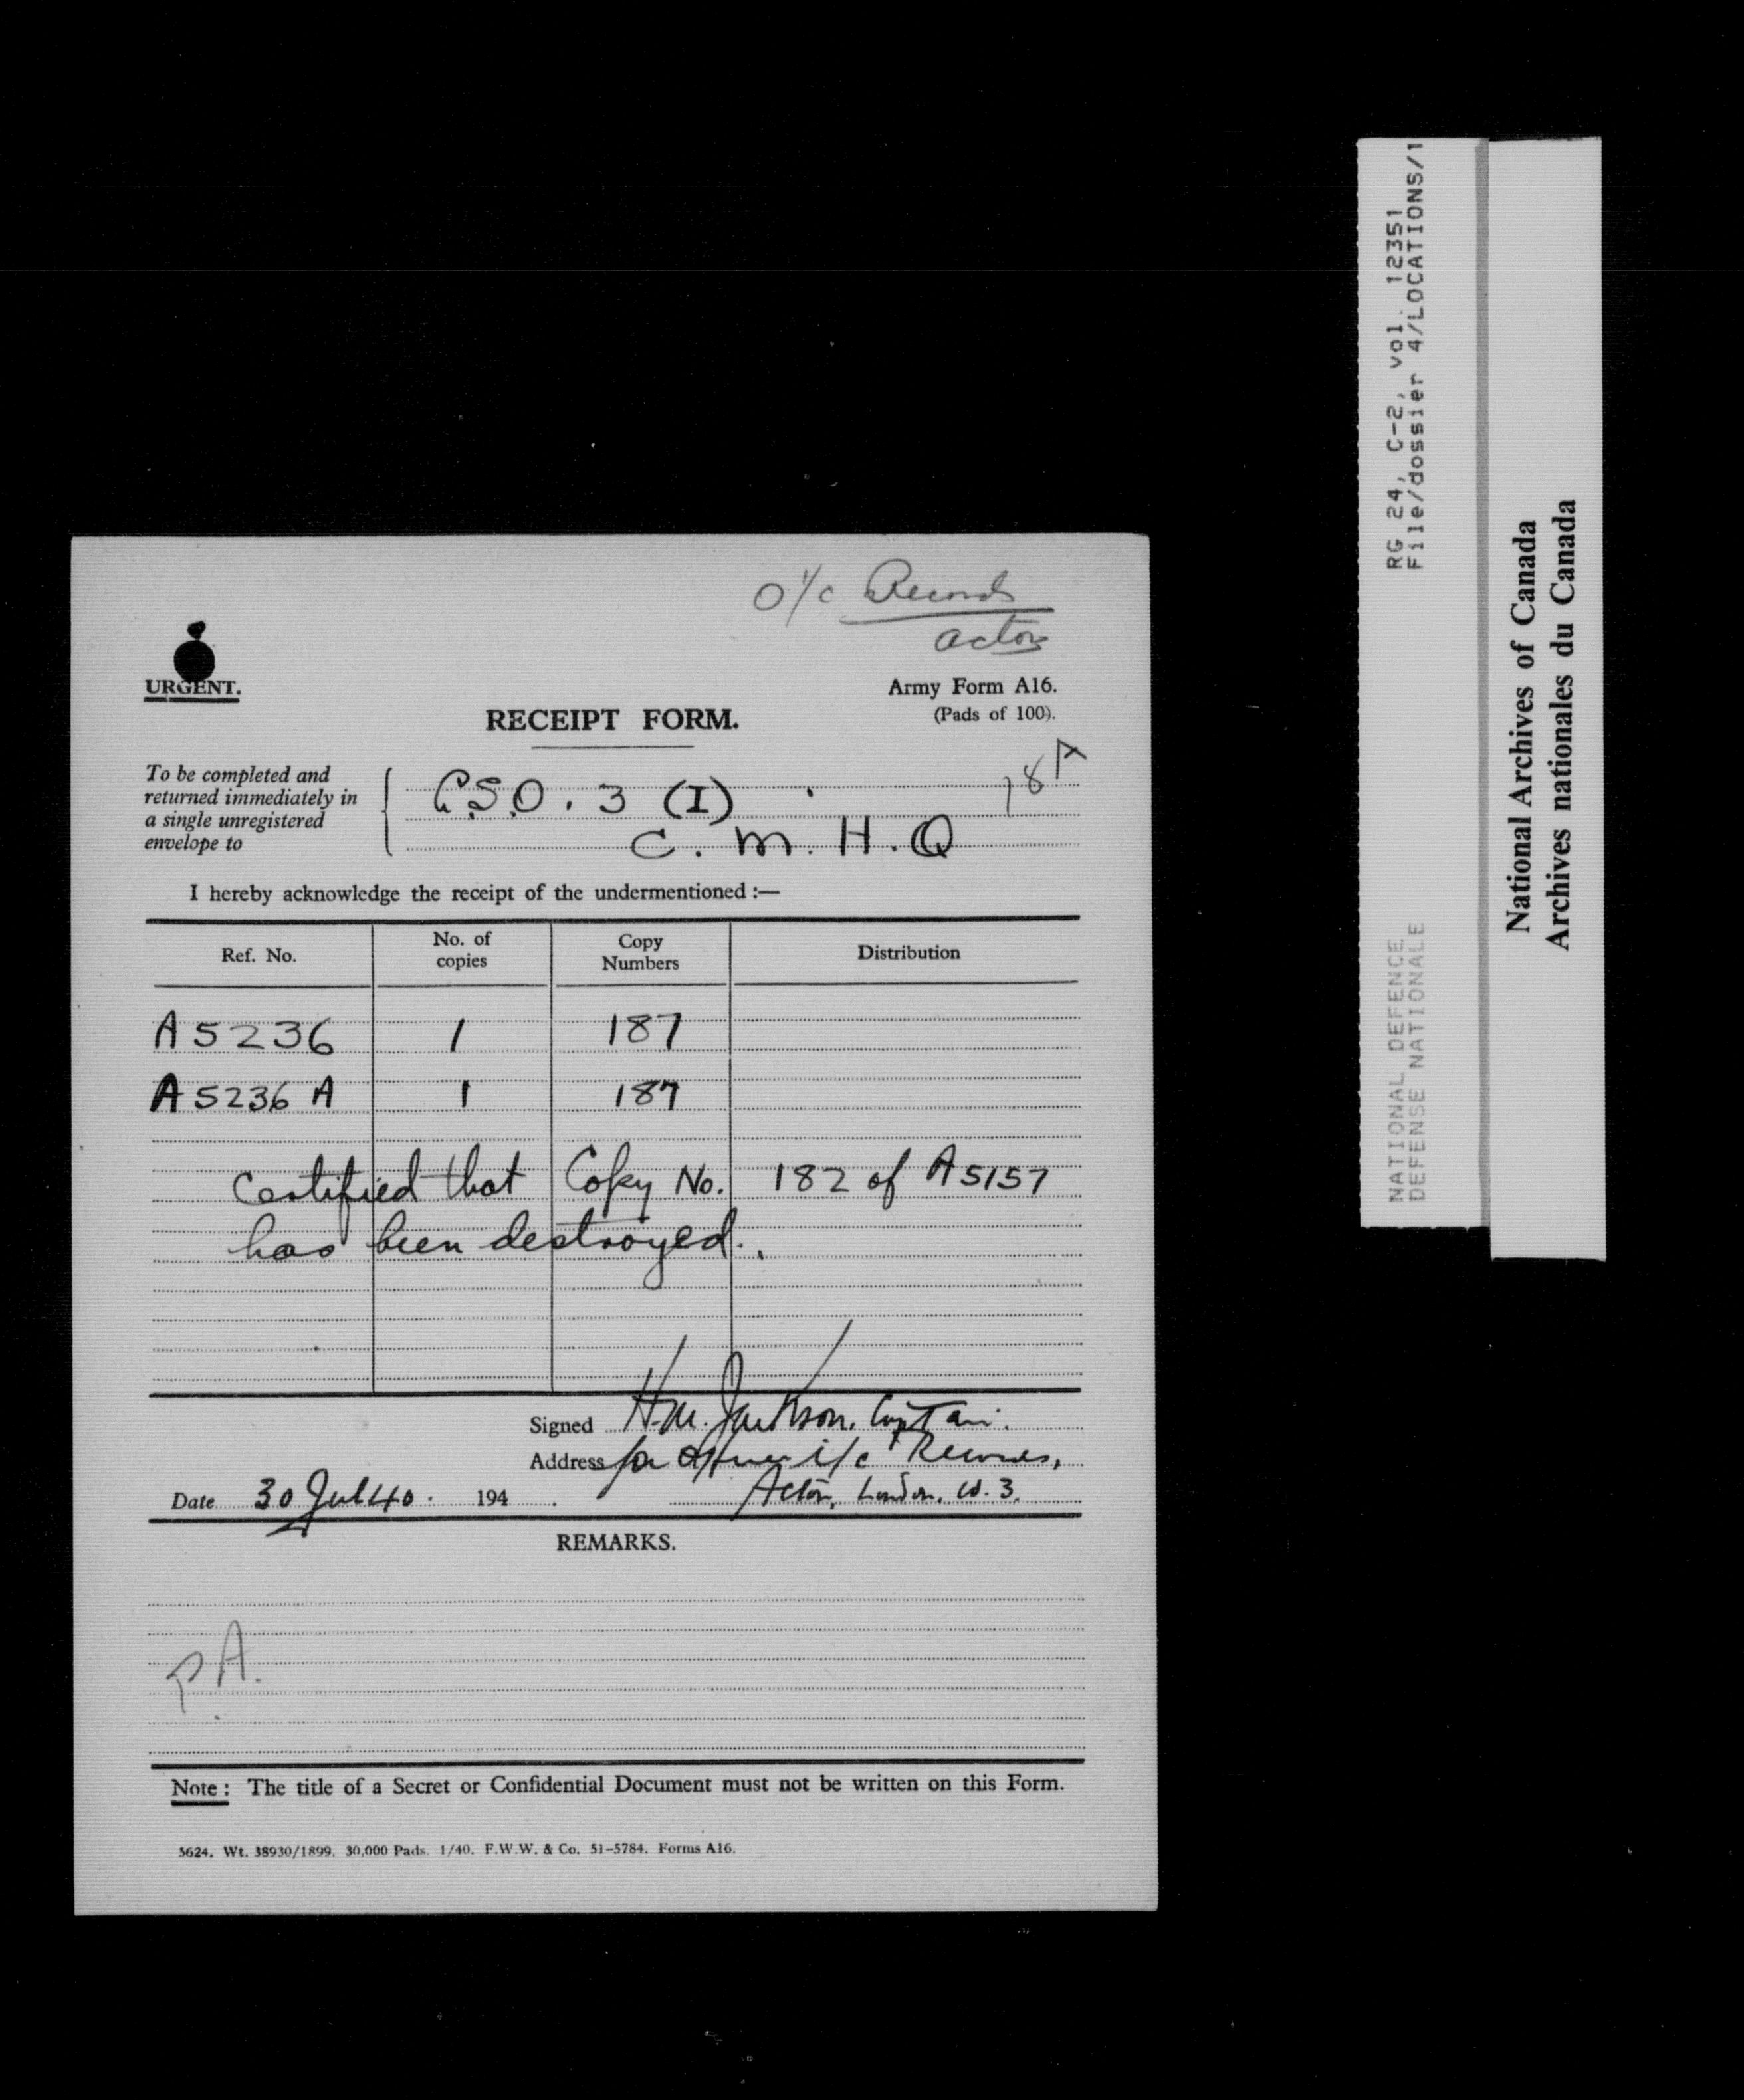 O i/c Records
Acton
URGENT.
Army Form A16.
(Pads of 100).
RECEIPT FORM.
To be completed and
returned immediately in
a single unregistered
envelope to
G.S.O. 3 (I)
18A
C. M. H. Q
I hereby acknowledge the receipt of the undermentioned :—
Ref. No. No. of copies Copy Numbers Distribution
A 5236 1 187
A 5236 A 1 187
Certified that Copy No. 182 of A5157
has been destroyed.
Signed H.M. Jackson, Captain.
Address for Officer i/c Records,
Date 30 Jul 40. 194 . Acton, London, W. 3.
REMARKS.
P.A.
Note : The title of a Secret or Confidential Document must not be written on this Form.
5624. Wt. 38930/1899. 30,000 Pads. 1/40. F.W.W. & Co. 51-5784. Forms A16.
RG 24, C-2, vol. 12351
File/dossier 4/LOCATIONS/1
NATIONAL DEFENCE
DEFENSE NATIONALE
National Archives of Canada
Archives nationales du Canada